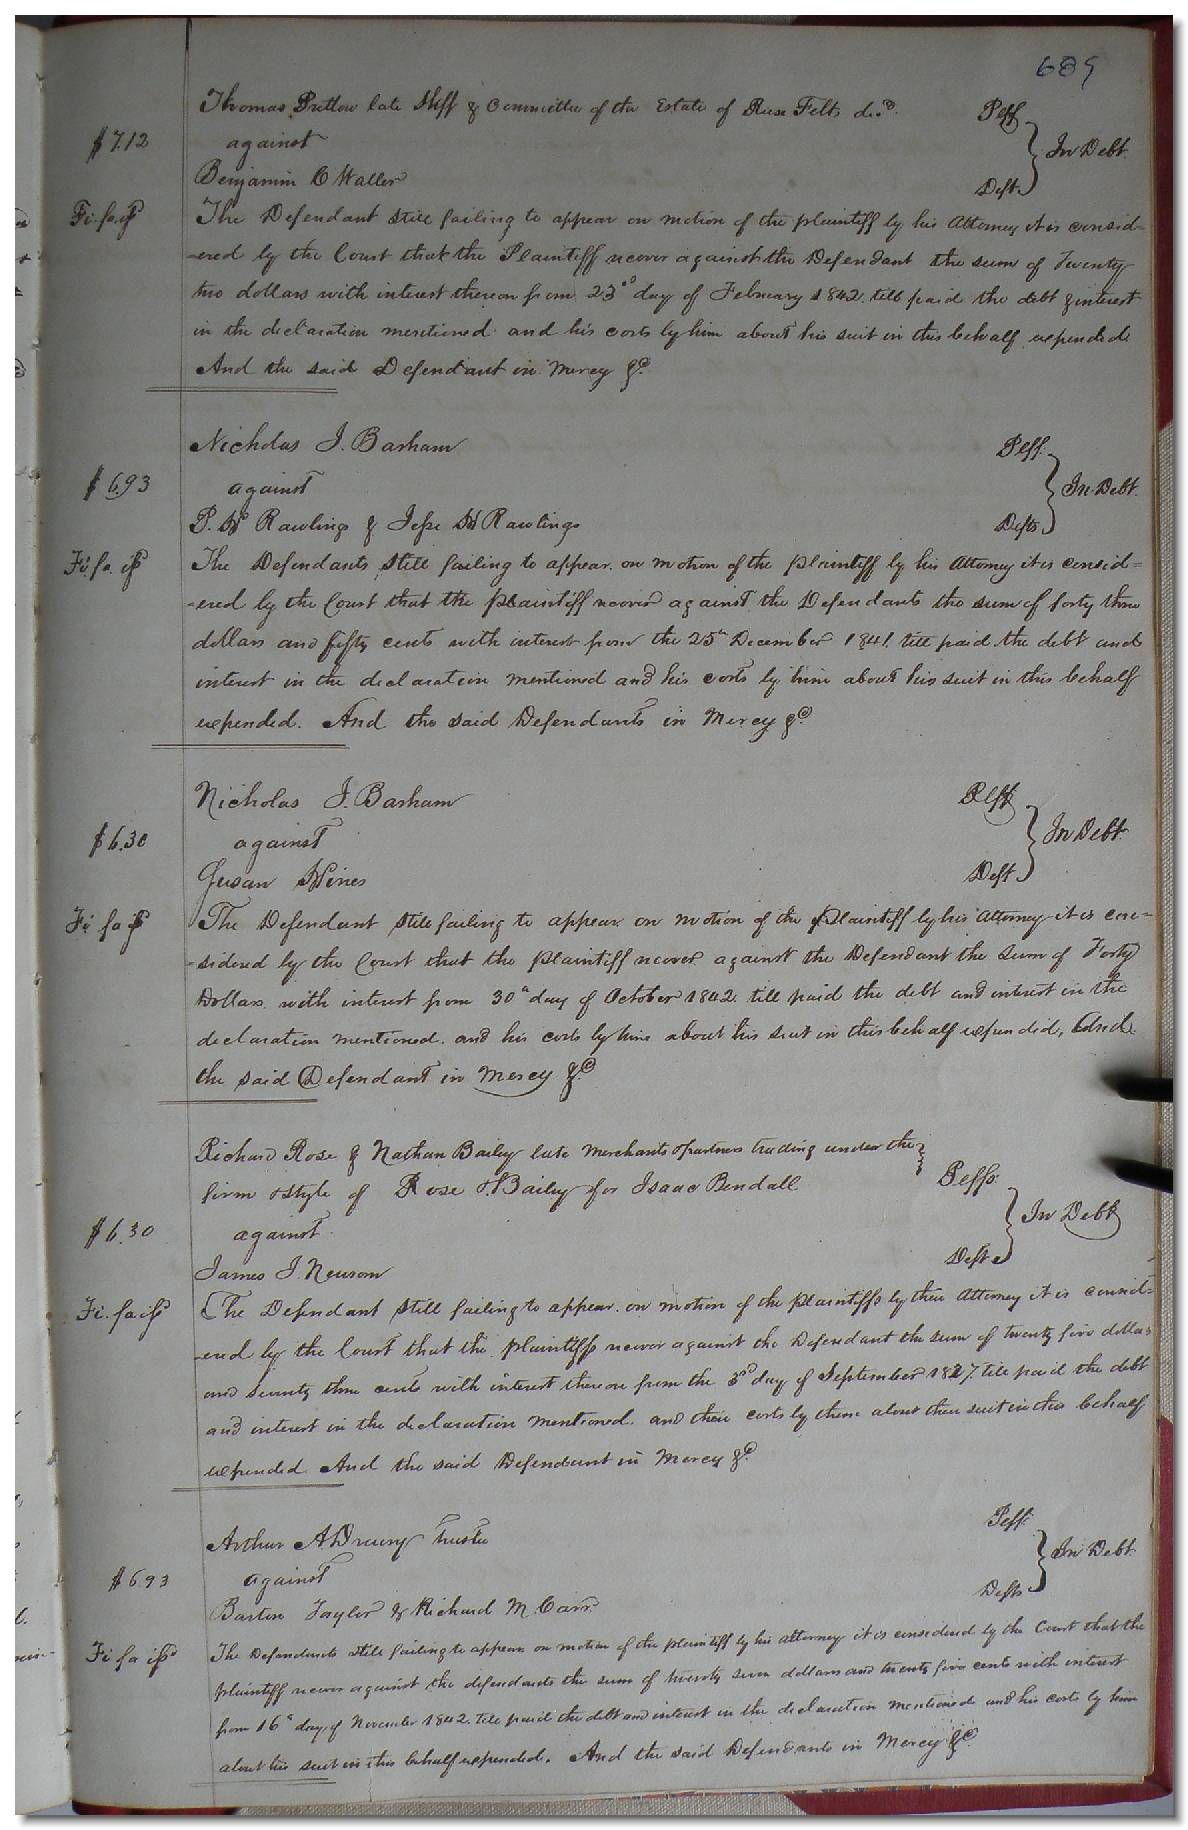 689
Thomas Pretlow late Shff & Committee of the Estate of Rux Felts decd. Plff
$7.12 against In Debt
Benjamin C Waller Deft.
Fi. fa. isd The Defendant still failing to appear on motion of the plaintiff by his Attorney it is consid=
=ered by the Court that the Plaintiff recover against the Defendant the sum of Twenty
two dollars with interest thereon from 23rd day of February 1842. till paid the debt & interest
in the declaration mentioned and his costs by him about his suit in this behalf expended
And the said Defendant in Mercy &c
Nicholas J. Barham Plff.
$6.93 against In Debt.
P. W Rawlings & Jesse W Rawlings Defts
Fi. fa. isd The Defendants still failing to appear. on motion of the plaintiff by his Attorney it is consid=
=ered by the Court that the plaintiff recover against the Defendants the sum of forty three
dollars and fifty cents with interest from the 25th December 1841. till paid the debt and
interest in the declaration mentioned and his costs by him about his suit in this behalf
expended. And the said Defendants in Mercy &c
Nicholas J. Barham Plff
$6.30 against In Debt.
Susan Hines Deft.
Fi fa isd The Defendant still failing to appear on motion of the Plaintiff by his Attorney it is con=
=sidered by the Court that the plaintiff recover against the Defendant the sum of Forty
Dollars with interest from 30th day of October 1842. till paid the debt and interest in the
declaration mentioned. and his costs by him about his suit in this behalf expended, And
the said Defendant in Mercy &c
Richard Rose & Nathan Bailey late merchants & partners trading under the
firm & Style of Rose & Bailey for Isaac Bendall Plffs
$6.30 against In Debt
James J. Newsom Deft
Fi. fa isd The Defendant still failing to appear. on motion of the plaintiffs by their Attorney it is consid=
=ered by the Court that the plaintiffs recover against the Defendant the sum of twenty five dollars
and seventy three cents with interest thereon from the 3rd day of September 1827. till paid the debt
and interest in the declaration mentioned. and their costs by them about their suit in this behalf
expended And the said Defendant in Mercy &c
Arthur A Drewry Trustee Plff.
$6.93 against In Debt
Barton Taylor & Richard M. Carr Defts
Fi fa isd The Defendants still failing to appear on motion of the plaintiff by his attorney it is considered by the Court that the
plaintiff recover against the defendants the sum of twenty seven dollars and twenty five cents with interest
from 16th day of November 1842. till paid the debt and interest in the declaration mentioned and his costs by him
about his suit in this behalf expended. And the said Defendants in Mercy &c